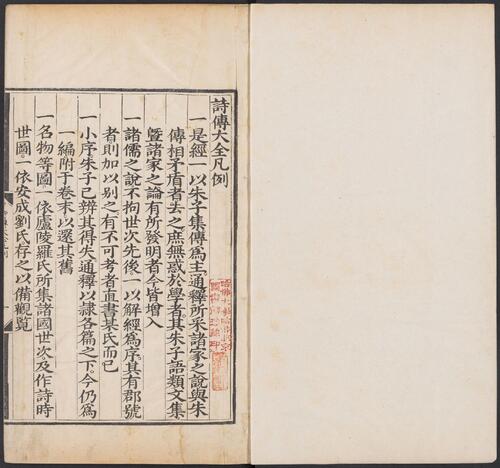 詩傳大全凡例
一是經一以朱子集傳爲主通釋所采諸家之說與朱
傳相矛盾者去之庶無惑於學者其朱子語類文集
曁諸家之論有所發明者今皆增入
一諸儒之說不拘世次先後一以解經爲序其有郡號
者則加以别之有不可考者直書某氏而已
一小序朱子已辨其得失通釋以隷各篇之下今仍爲
一編附于卷末以還其舊
一名物等圖一依廬陵羅氏所集諸國世次及作詩時
世圖一依安成劉氏存之以備觀覽